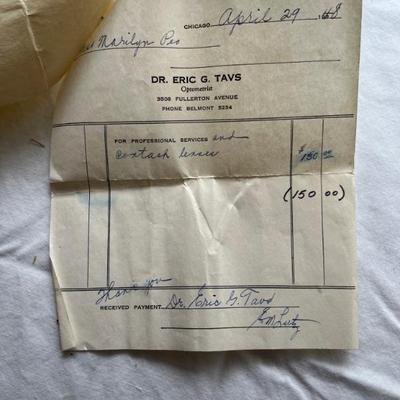 CHICAGO, April 29 1948
Marilyn
DR. ERIC G. TAVS
Optometrist
3508 FULLERTON AVENUE
PHONE BELMONT 5234
FOR PROFESSIONAL SERVICES and
contach lenses $150 00
(150 00)
Thank you
RECEIVED PAYMENT, Dr. Eric G. Tavs
EM Lutz